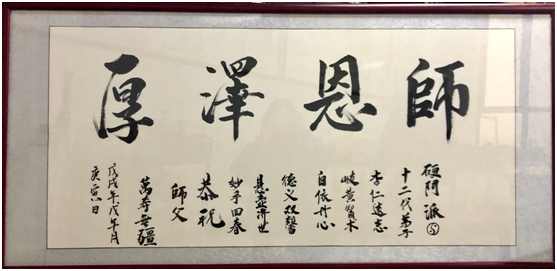 師恩澤厚
硬門派
十二代弟子
杏仁遠志
岐黃賢术
自依丹心
德义双馨
悬壶濟世
妙手回春
恭祝
師父
萬寿無疆
戊戌年戊午月
庚寅日